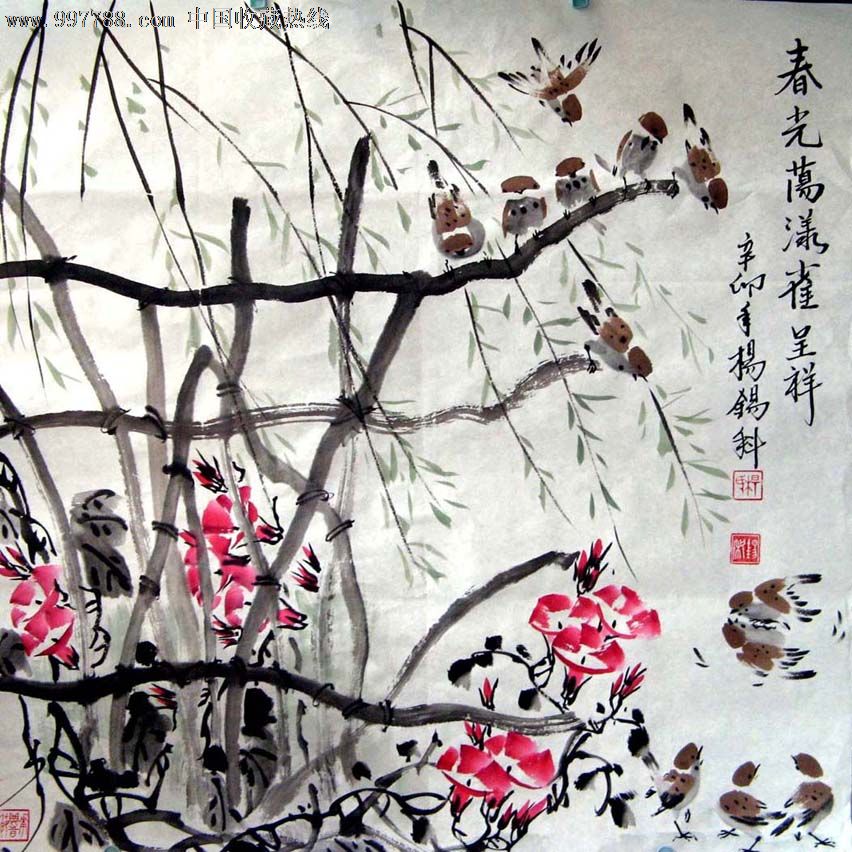 www.997788.com 中国收藏热线
春光蕩漾雀呈祥
辛卯年楊錫科